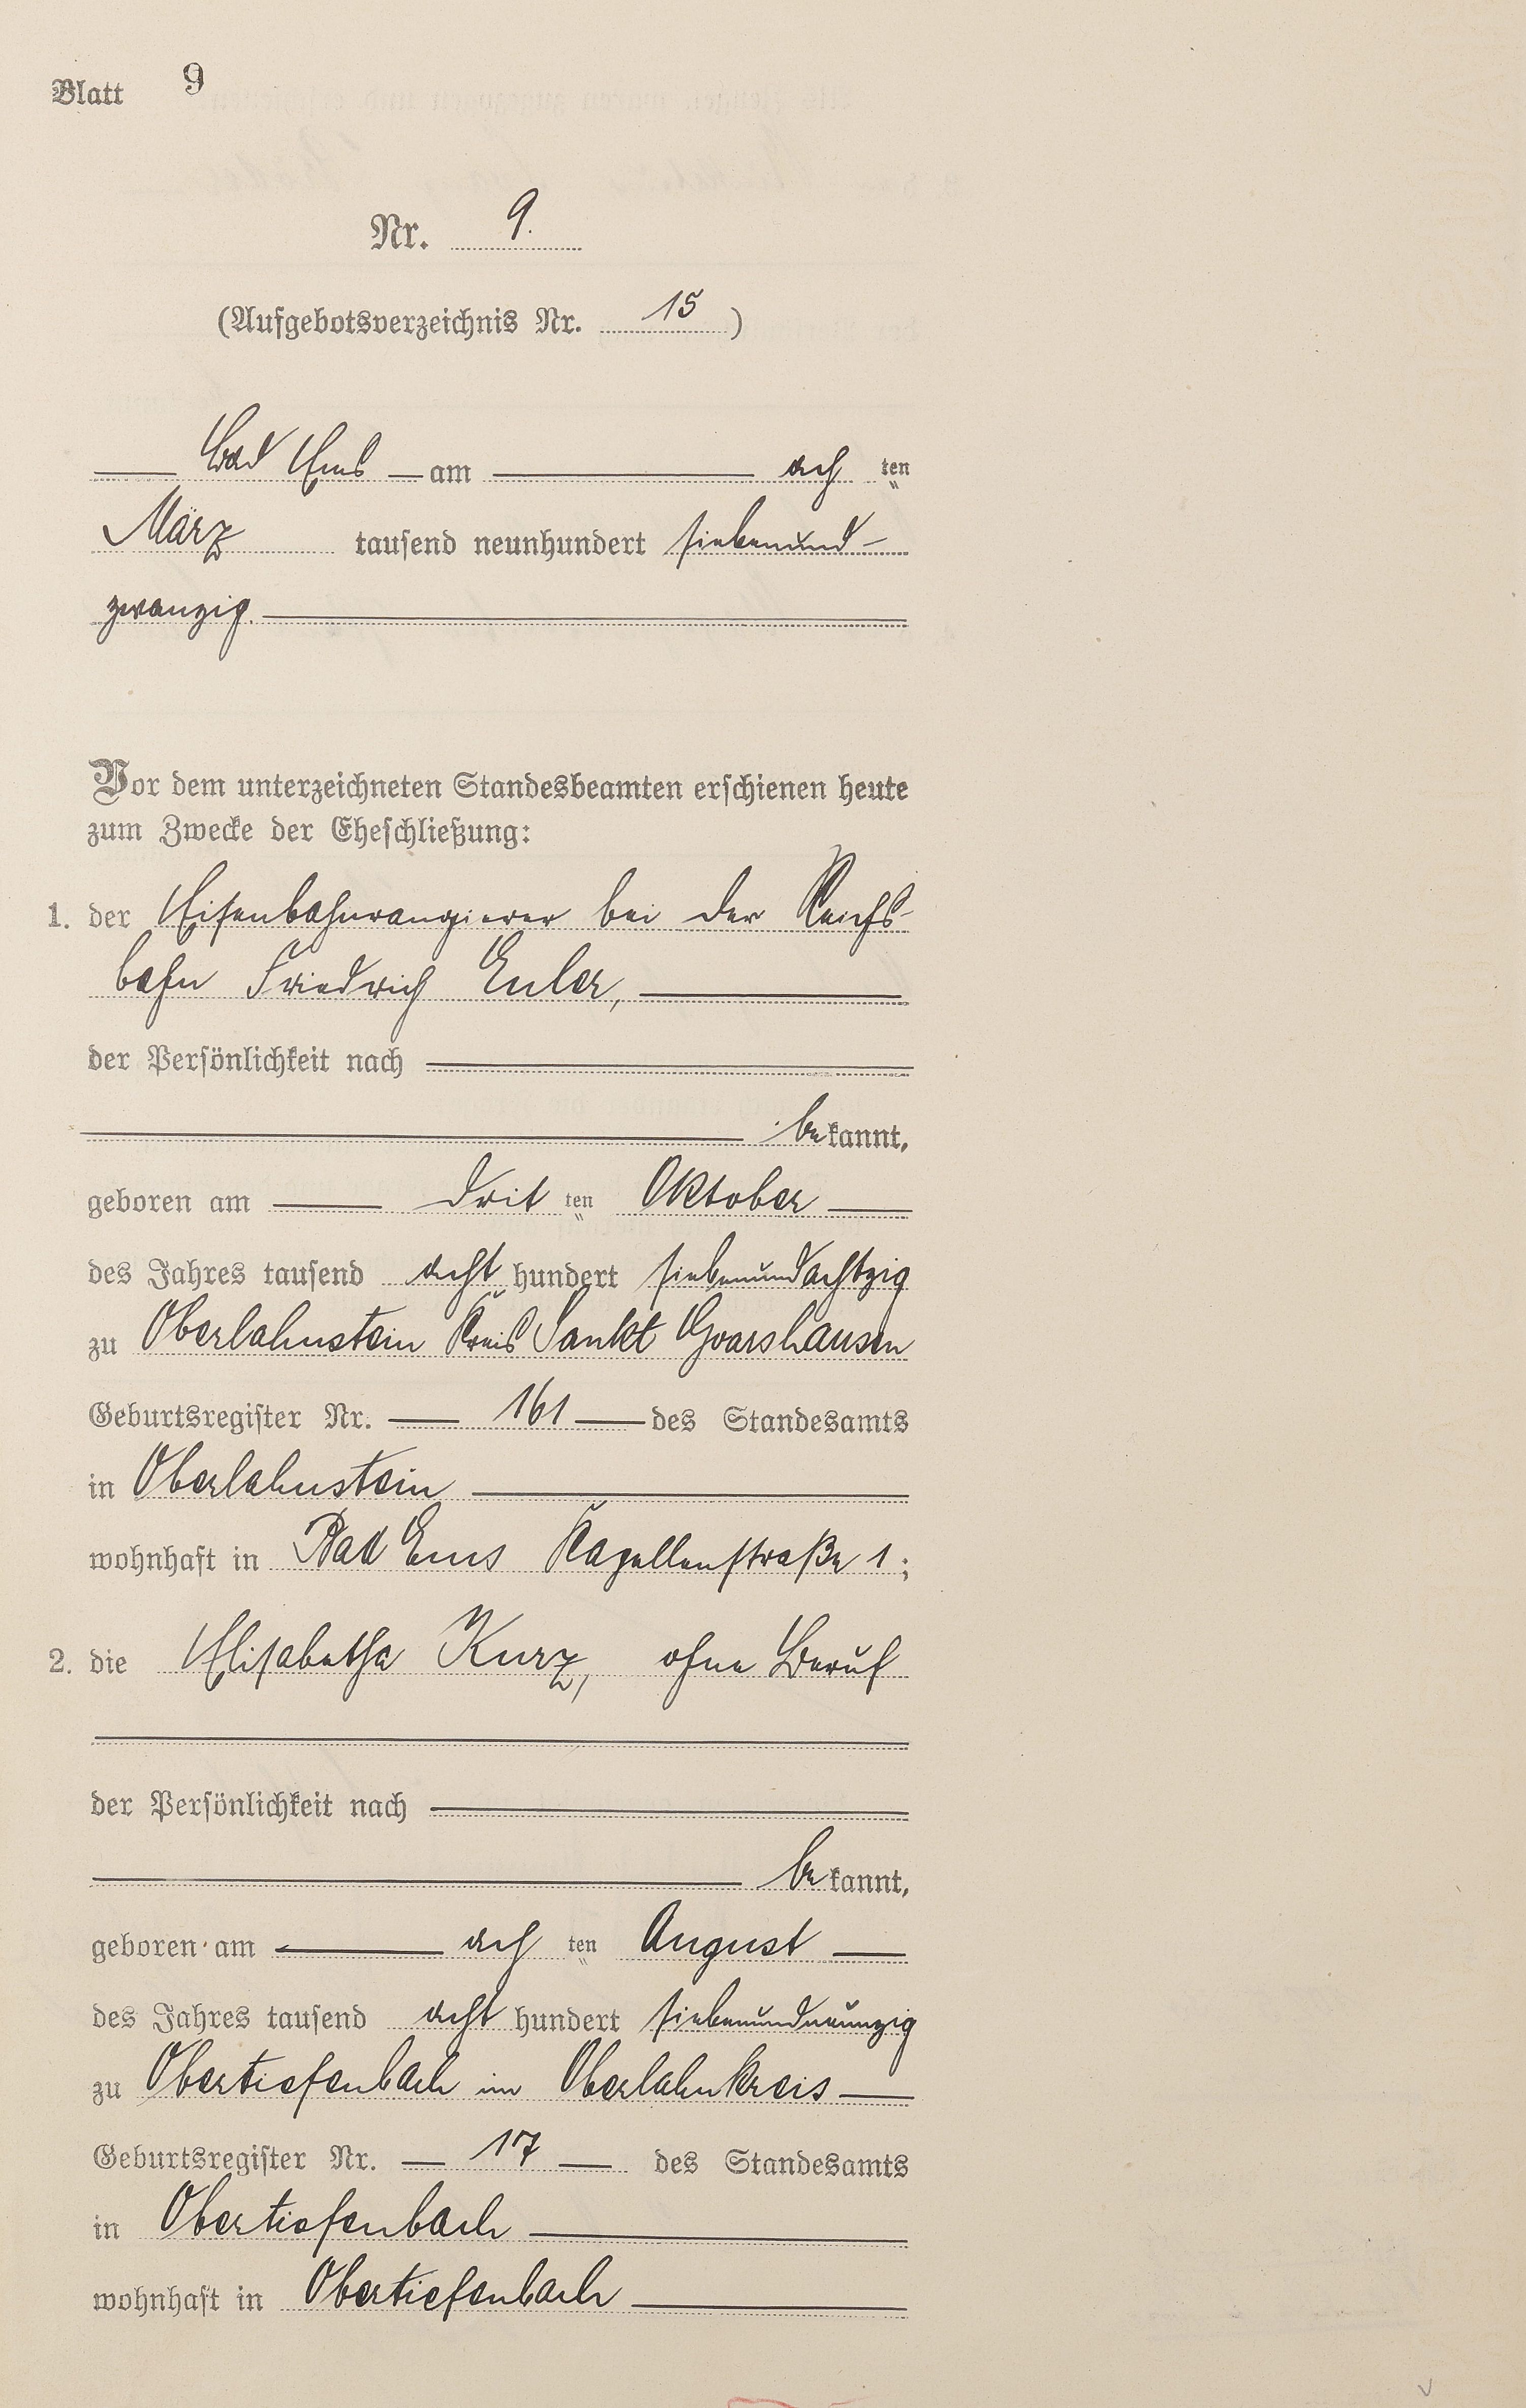 Blatt 9
Nr. 9.
(Aufgebotsverzeichnis Nr. 15)
Bad Ems am ach ten
März tausend neunhundert siebenund-
zwanzig.
Vor dem unterzeichneten Standesbeamten erschienen heute
zum Zwecke der Eheschließung:
1. der Eisenbahnrangierer bei der Reichs-
bahn Friedrich Euler,
der Persönlichkeit nach
bekannt,
geboren am drit ten Oktober
des Jahres tausend acht hundert siebenundachtzig
zu Oberlahnstein Kreis Sankt Goarshausen
Geburtsregister Nr. 161 des Standesamts
in Oberlahnstein
wohnhaft in Bad Ems Kapellenstraße 1;
2. die Elisabetha Kurz, ohne Beruf
der Persönlichkeit nach
bekannt,
geboren am ach ten August
des Jahres tausend acht hundert siebenundneunzig
zu Obertiefenbach im Oberlahnkreis
Geburtsregister Nr. 17 des Standesamts
in Obertiefenbach
wohnhaft in Obertiefenbach